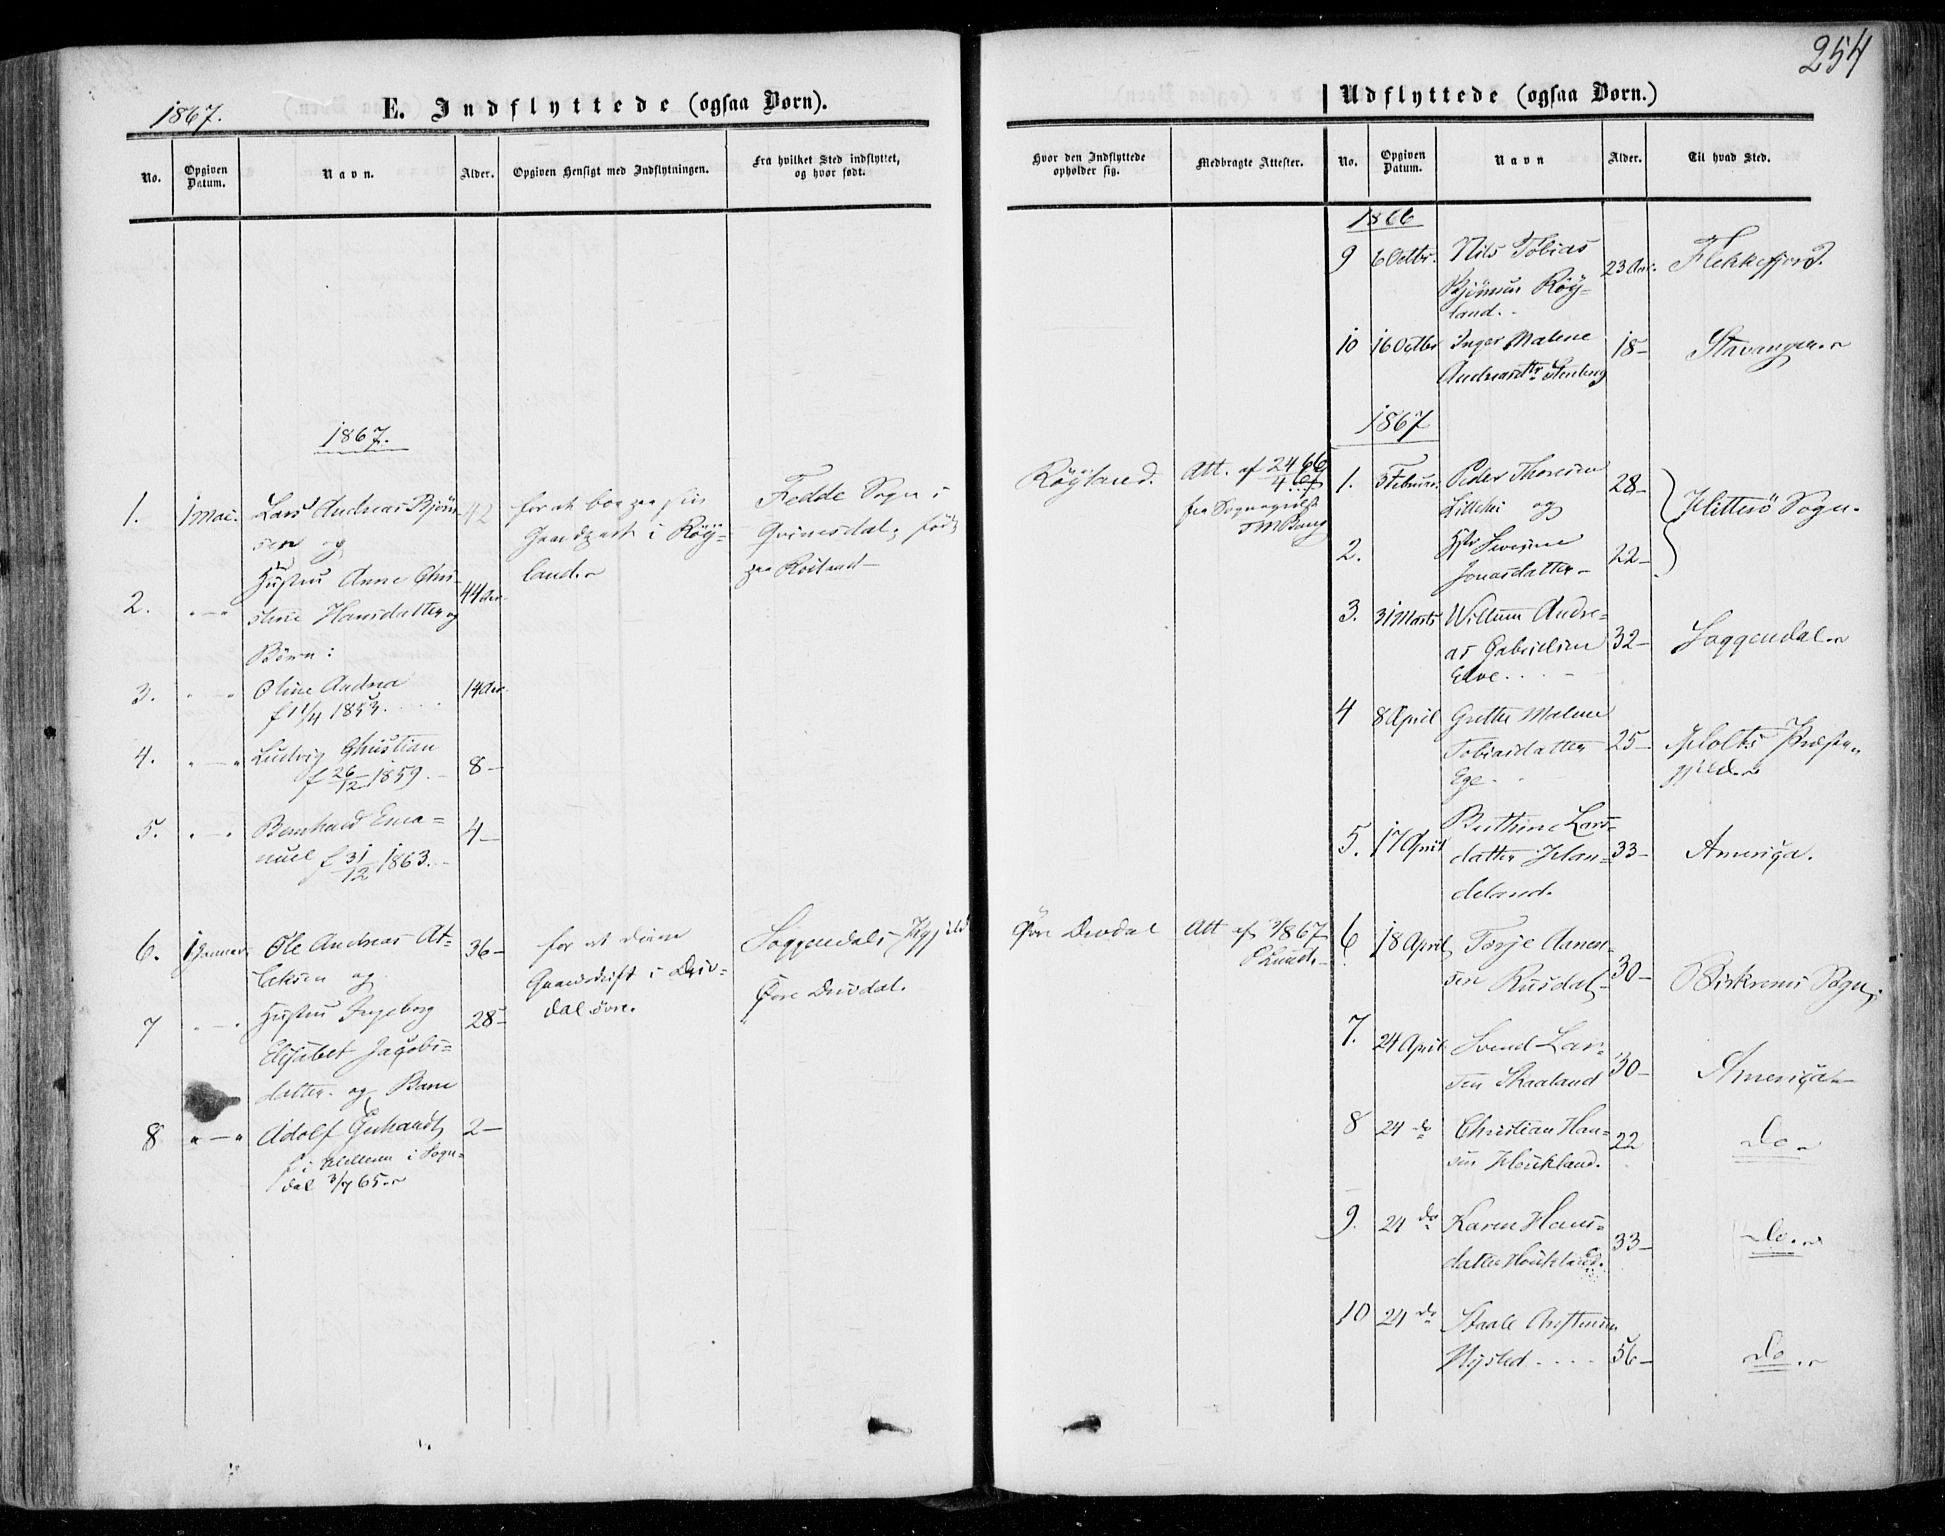 1867.
E. Indflyttede (ogsaa Børn).
No.
Opgiven Datum.
Navn.
Alder.
Opgiven Hensigt med Indflytningen.
Fra hvilket Sted indflyttet, og hvor født.
1867.
1.
1 Mai.
Lars Andreas Bjørn-
sen og
42
for at boe paa sin
Gaardpart i Røy-
land.
Fedde Sogn i
Qvinesdal, født
paa Röiland
2.
" — "
Hustru Anne Chri-
stine Hansdatter og
44 Aar
Børn:
3.
" — "
Oline Andrea
f 11/4 1853.
14 Aar
4.
" — "
Ludvig Christian
f 26/12 1859.
8 —
5.
" — "
Bernhard Ema-
nuel f 31/12 1863.
4 —
6.
1 Januar
Ole Andreas At-
laksen og
36 —
for at drive
Gaardsdrift i Driv-
dal øvre.
Soggendals
Øvre Drivdal.
7
" — "
Hustru Ingeborg
Elisabet Jacobs-
datter og Barn
28 —
8
" — "
Adolf Gerhardt
f i i Sogn-
dal 3/7 65.
2 —
254
Udflyttede (ogsaa Børn.)
Hvor den Indflyttede opholder sig.
Medbragte Attester.
No.
Opgiven Datum.
Navn
Alder.
Til hvad Sted.
1866
9
6 Octbr.
Nils Tobias
Bjørnsen Röy-
land.
23 Aar.
Flekkefjord.
10
16 Octbr
Inger Malene
Andreasdtr Stenberg
18 —
Stavanger.
1867
Röyland.
Att. af 24/4 66 67
fra Sognepræst
1.
3 Februar.
Peder Thorsen
Lillehei og
28 —
Hitterö Sogn.
2.
Hstr Severine
Jonasdatter
22 —
3.
31 Marts
Willum Andre-
as Gabrielsen
Eève.
32 —
Soggendal
4
8 April
Grethe Malene
Tobiasdatter
Ege.
25 —
Holts Præste-
gjeld.
5.
17 April
Berthine Lars-
datter Han-
deland.
33 —
Amerika.
Övre Drivdal
Att af 3/8 67
Lund.
6
18 April
Terje Aanen-
sen Rusdal
30 —
Birkrems Sogn
7.
24 April
Svend Lar-
sen Skaaland
30 —
Amerika
8
24 do
Christian Han-
sen Houkland.
22
do
9.
24 do
Karen Hans-
datter Houkland.
33 —
do.
10
24 do
Staale
Mysted
56 —
do.